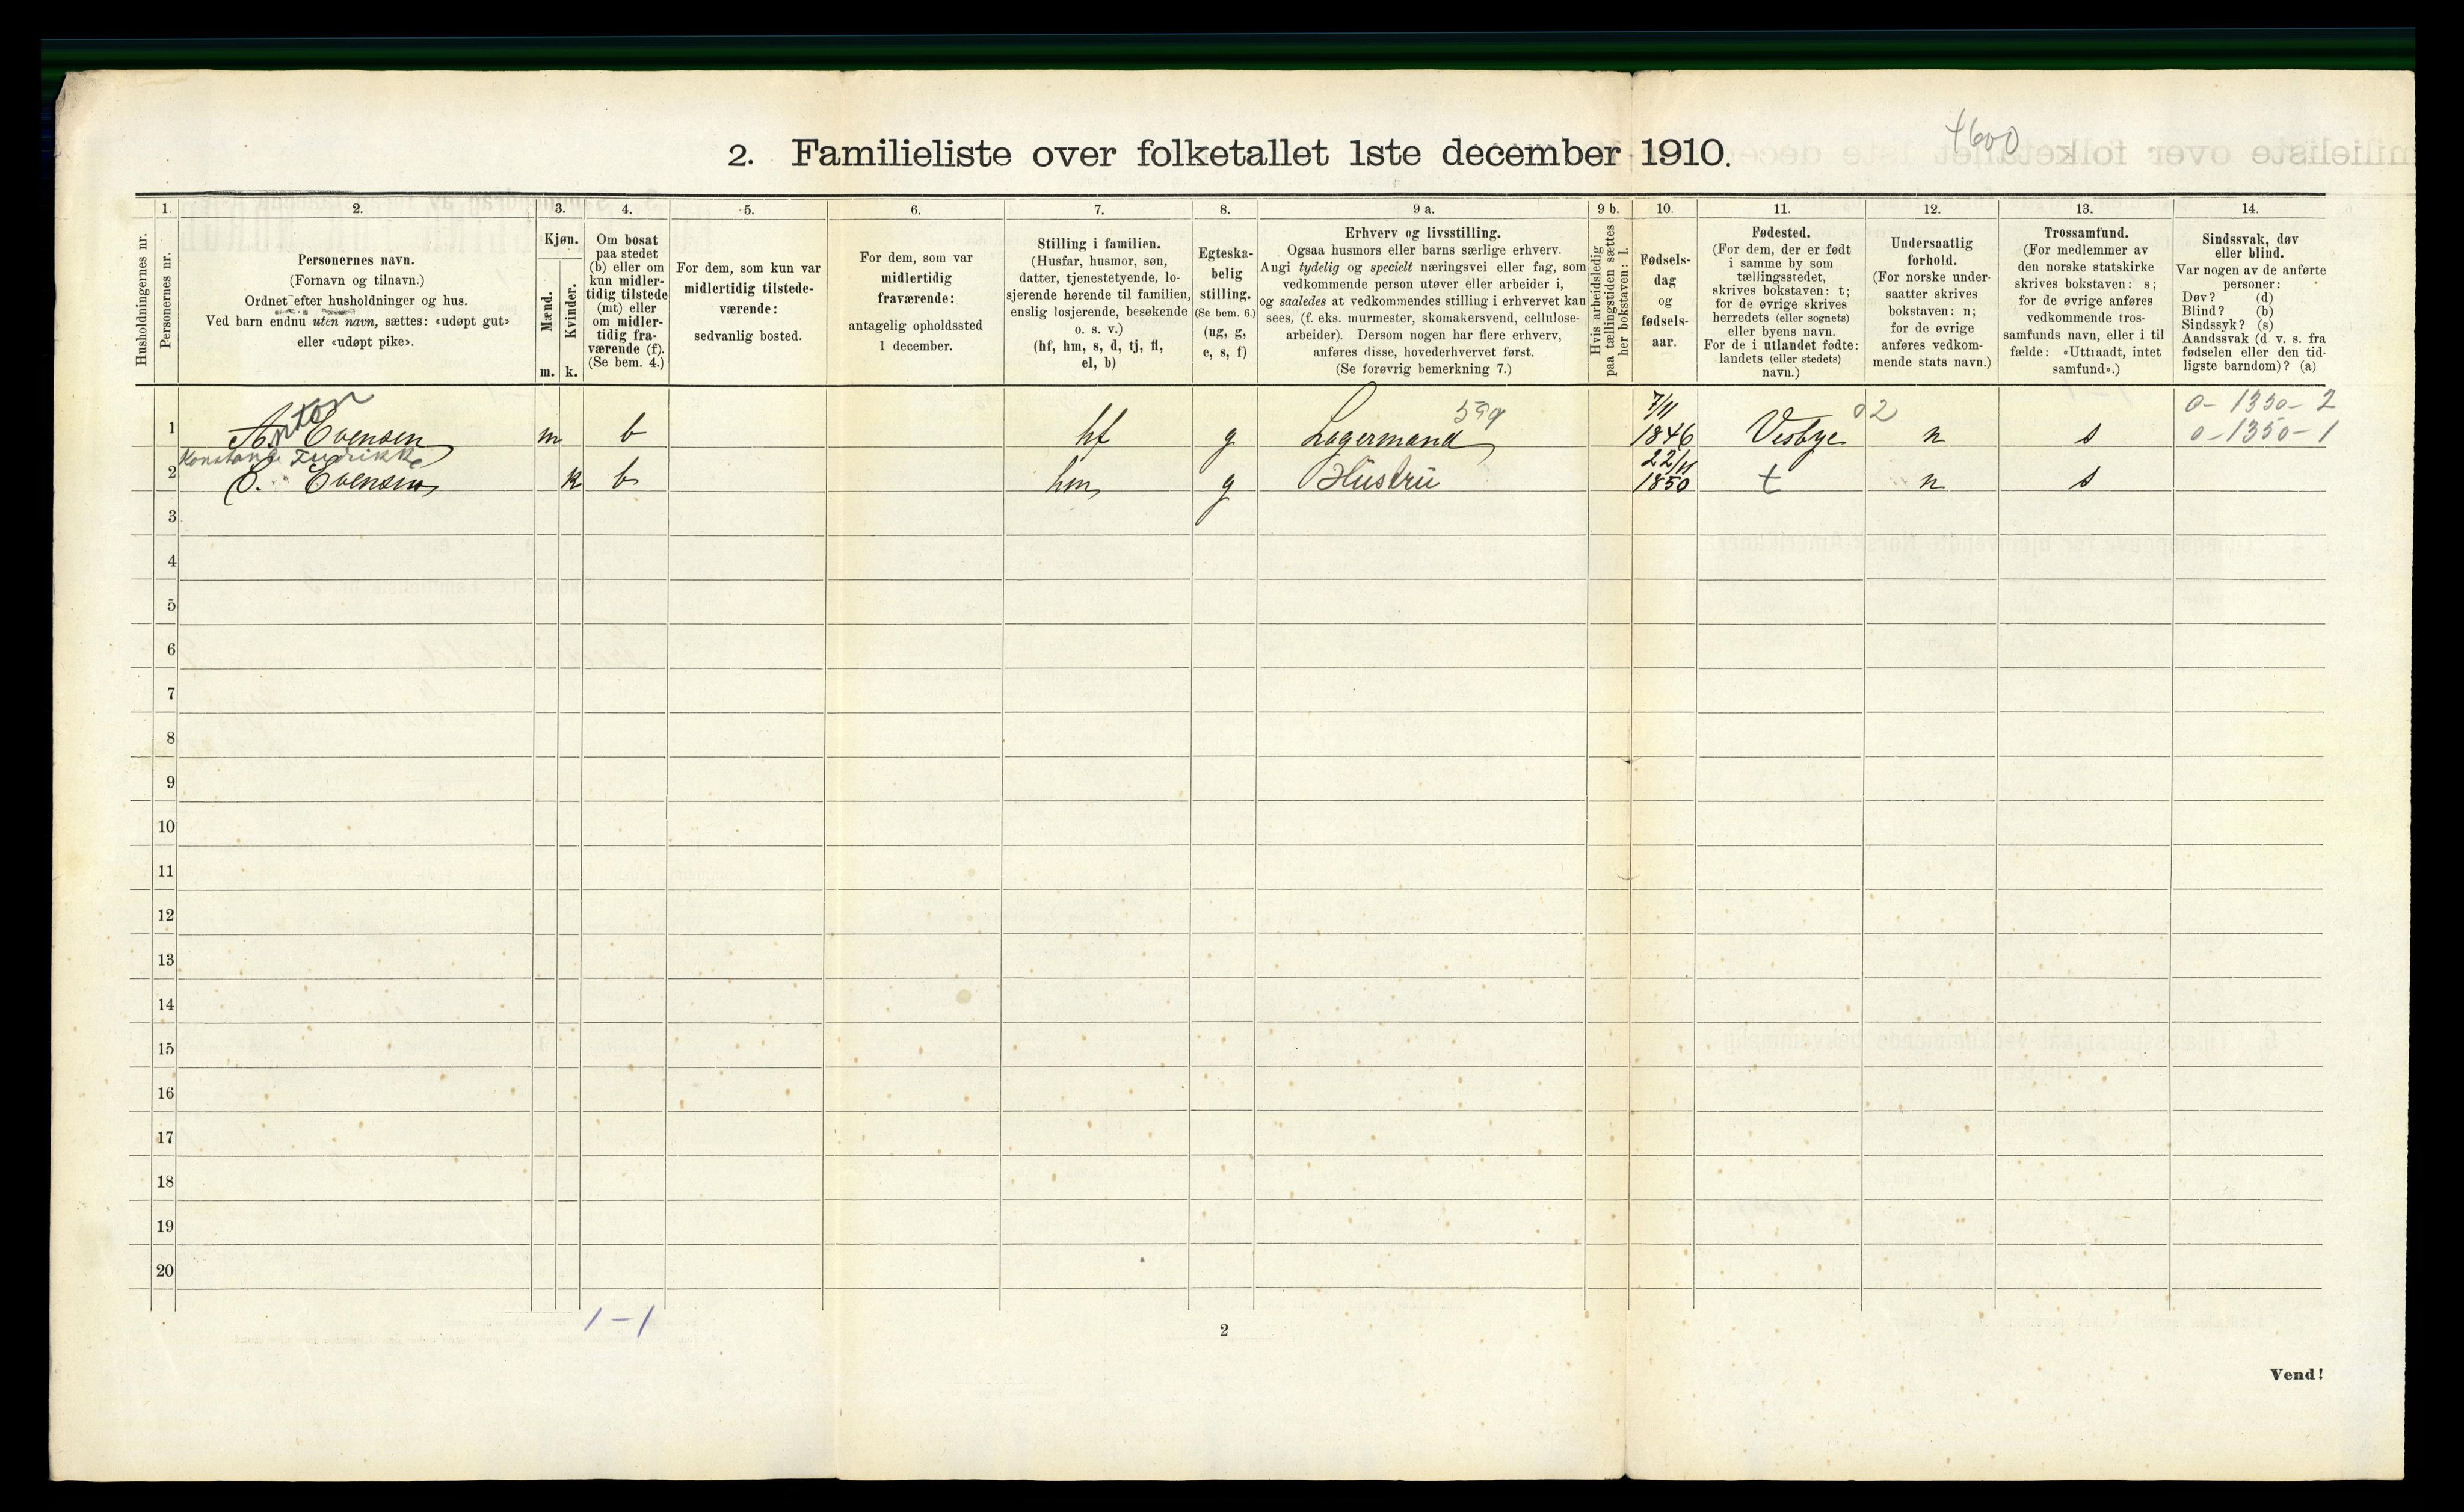 4600
2. Familieliste over folketallet 1ste december 1910.
Husholdningernes nr.
1.
Personernes nr.
2.
Personernes navn.
(Fornavn og tilnavn.)
Ordnet efter husholdninger og hus.
Ved barn endnu uten navn, sættes: «udøpt gut»
eller «udøpt pike».
3.
Kjøn.
Mænd.
Kvinder.
m. k.
4.
Om bosat
paa stedet
(b) eller om
kun midler-
tidig tilstede
(mt) eller
om midler-
tidig fra-
værende (f).
(Se bem. 4.)
5.
For dem, som kun var
midlertidig tilstede-
værende:
sedvanlig bosted.
6.
For dem, som var
midlertidig
fraværende:
antagelig opholdssted
1 december.
7.
Stilling i familien.
(Husfar, husmor, søn,
datter, tjenestetyende, lo-
sjerende hørende til familien,
enslig losjerende, besøkende
o. s. v.)
(hf, hm, s, d, tj, fl,
el, b)
8.
Egteska-
belig
stilling.
(Se bem. 6.)
(ug, g,
e, s, f)
9 a.
Erhverv og livsstilling.
Ogsaa husmors eller barns særlige erhverv.
Angi tydelig og specielt næringsvei eller fag, som
vedkommende person utøver eller arbeider i,
og saaledes at vedkommendes stilling i erhvervet kan
sees, (f. eks. murmester, skomakersvend, cellulose-
arbeider). Dersom nogen har flere erhverv,
anføres disse, hovederhvervet først.
(Se forøvrig bemerkning 7.)
9 b.
Hvis arbeidsledig
paa tællingstiden sættes
her bokstaven: l.
10.
Fødsels-
dag
og
fødsels-
aar.
11.
Fødested.
(For dem, der er født
i samme by som
tællingsstedet,
skrives bokstaven: t;
for de øvrige skrives
herredets (eller sognets)
eller byens navn.
For de i utlandet fødte:
landets (eller stedets)
navn.)
12.
Undersaatlig
forhold.
(For norske under-
saatter skrives
bokstaven: n;
for de øvrige
anføres vedkom-
mende stats navn.)
13.
Trossamfund.
(For medlemmer av
den norske statskirke
skrives bokstaven: s;
for de øvrige anføres
vedkommende tros-
samfunds navn, eller i til
fælde: «Uttraadt, intet
samfund».)
14.
Sindssvak, døv
eller blind.
Var nogen av de anførte
personer:
Døv? (d)
Blind? (b)
Sindssyk? (s)
Aandssvak (d v. s. fra
fødselen eller den tid-
ligste barndom)? (a)
Anton 599 7/11 02 0-1350-2
1 Evensen m b hf g Lagermand 1846 Vesbye n s 0-1350-1
Konstance Fredrikke 22/11
2 Evensen k b hm g Hustru 1850 t n s
3
4
5
6
7
8
9
10
11
12
13
14
15
16
17
18
19
20
1-1
2
Vend!